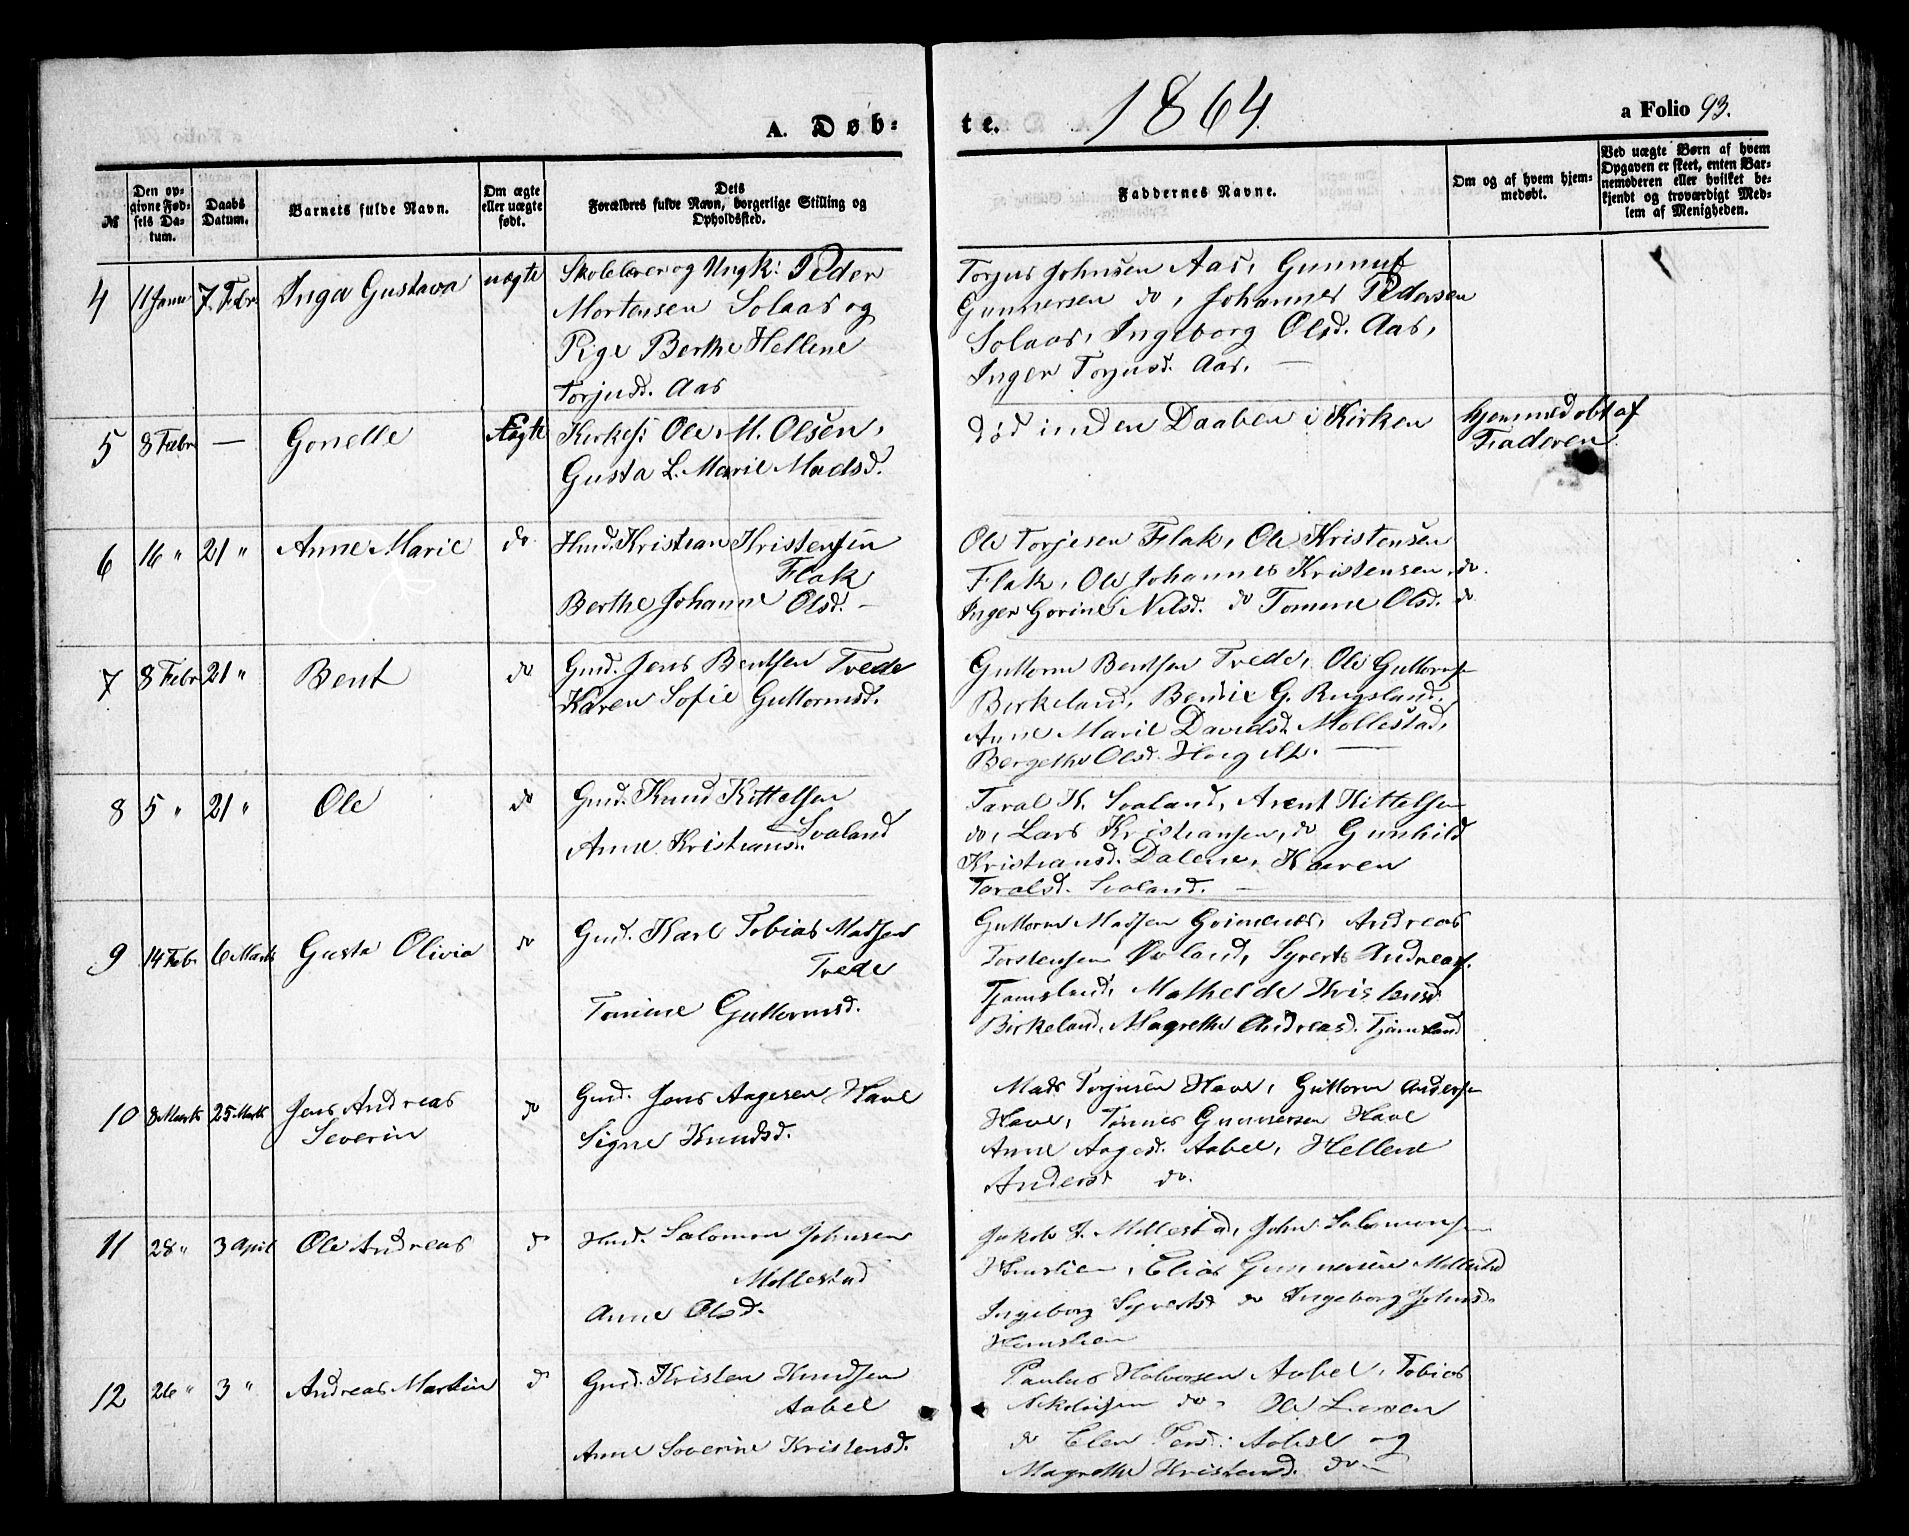 A. Døb-
te.
1864.
a Folio 93.
№
Den op-
givne Fød-
sels Da-
tum.
Daabs
Datum.
Barnets fulde Navn.
Om ægte
eller uægte
født.
Dets
Forældres fulde Navn, borgerlige Stilling og
Opholdssted.
Faddernes Navne.
Om og af hvem hjem-
medøbt.
Ved uægte Børn af hvem
Opgaven er skeet, enten Bar-
nemoderen eller hvilket be-
kjendt og troværdigt Med-
lem af Menigheden.
4 11 Janu 7. Febr Inga Gustava uægte
Skolelærer og Ungk: Peder
Mortensen Solaas og
Pige Berthe Hellene
Torjusd. Aas
Torjus Johnsen Aas, Gunnuf
Gunnersen do, Johannes Pedersen
Solaas, Ingeborg Olsd. Aas,
Inger Torjusd. Aas. —
5 8 Febr — Gonelle Ægte
Kirkes: Ole M. Olsen,
Gusta L. Marie Madsd.
død inden Daaben i Kirken
hjemmedøbt af
Faderen
6 16 " 21 " Anne Marie do
Hmd. Kristian Kristensen
Flak
Berthe Johanne Olsd. —
Ole Torjesen Flak, Ole Kristensen
Flak, Ole Johannes Kristensen, do.
Inger Gorine Nilsd. do Tomine Olsd. do
7 8 Febr 21 " Bent do
Gmd. Jens Bentsen Trede
Karen Sofie Guttormsd.
Guttorm Bentsen Trede, Ole Guttormsen
Birkeland, Bendix G. Rugsland,
Anne Marie Davidsd. Mollestad,
Bergethe Olsd.
8 5 " 21 " Ole do
Gmd. Knud Kittelsen
Svaland
Anne Kristiansd.
Taral K. Svaland, Arent Kittelsen
do, Lars Kristiansen, do Gunhild
Kristiansd. Dalene, Karen
Taralsd. Svaland. —
9 14 Febr 6 Marts Gusta Olivia do
Gmd. Karl Tobias Madsen
Trede
Tomine Guttormsd.
Guttorm Madsen Grimenes, Andreas
Torstensen Øvland, Syvert Andreas.
Tjomsland, Mathelde Kristensd
Birkeland, Magrethe Andreasd. Tjomsland
10 8 Marts 25 Marts Jens Andreas do
Severin
Gmd. Jens Aagesen, Have
Signe Knudsd.
Mads Torjusen Have, Guttorm Andersen
Have, Tønnes Gunnersen Have
Anne Aagesd. Aabel, Hellene
Andersd do.
11 28 " 3 April Ole Andreas d
Hmd. Salomon Johnsen
Mollestad
Anne Olsd.
Jakob A. Mollestad, John Salomonsen
Elias Gunnersen Mollestad
Ingeborg Syvertsd do Ingeborg Johnsd.
12 26 " 3 " Andreas Martin d
Gmd. Kristen Knudsen
Aabel
Anne Severine Kristensd.
Paulus Halvorsen Aabel, Tobias
Nikolaisen do, Ole Larsen
do Elen Persd. Aabel og
Magrethe Kristensd. do —